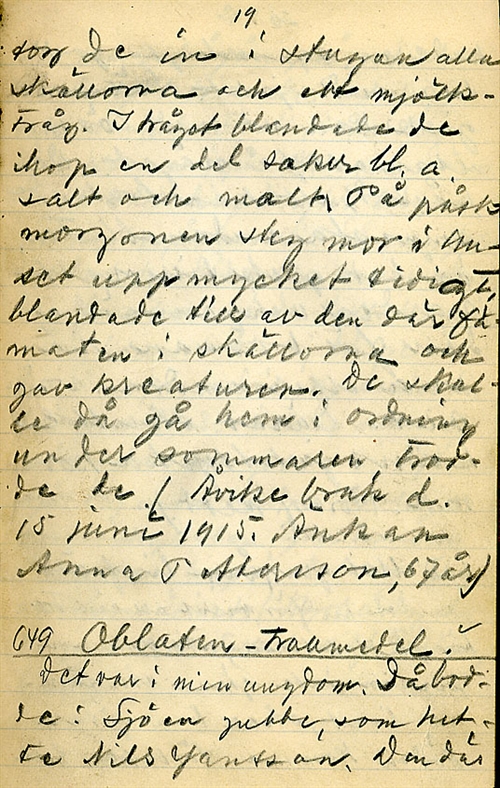 19
tog de in i stugan alla
skällorna och ett mjölk-
tråg. I tråget blandade de
ihop en del saker bl. a.
salt och malt. På påsk
morgonen steg mor i hu-
set upp mycket tidigt,
blandade till av den där få-
maten i skällorna och
gav kreaturen. De skul-
le då gå hem i ordning
under sommaren trod-
de de. (Åvike bruk d.
15 juni 1915. Änkan
Anna Petterson, 67 år)
649 Oblaten - trollmedel.
Det var i min ungdom. Då bod-
de i Sjöen gubbe, som het-
te Nils Jansson. Den där